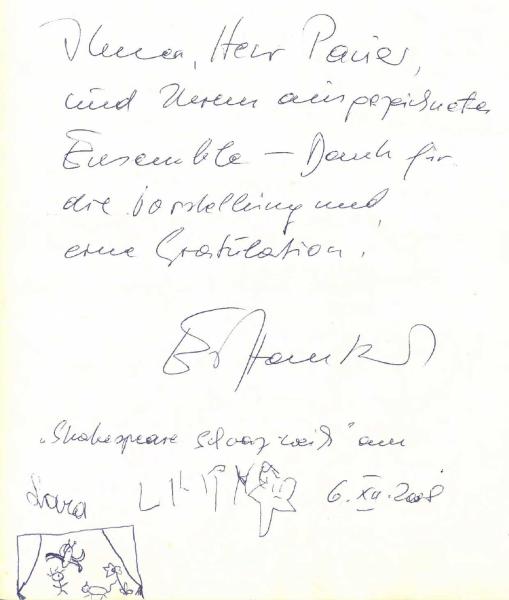 Ihnen, Herr Parier,
und Ihrem ausgezeichneten
Ensemble – Dank für
die Vorstellung und
eine Gratulation!
„Shakespeare schwarzweiß" am
6. XII. 2008
Lara